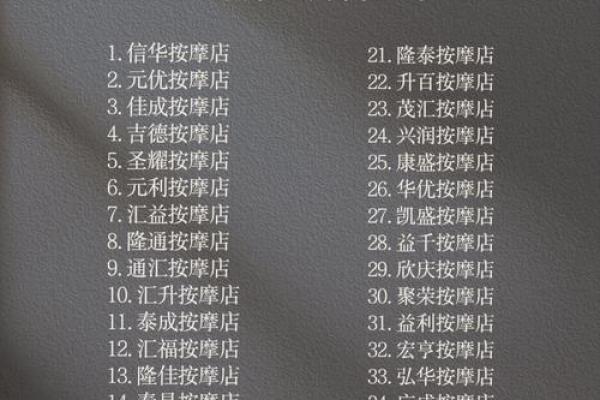 1. 信华按摩店
2. 元优按摩店
3. 佳成按摩店
4. 吉德按摩店
5. 圣耀按摩店
6. 元利按摩店
7. 汇益按摩店
8. 隆通按摩店
9. 通汇按摩店
10. 汇升按摩店
11. 泰成按摩店
12. 汇福按摩店
13. 隆佳按摩店
21. 隆泰按摩店
22. 升百按摩店
23. 茂汇按摩店
24. 兴润按摩店
25. 康盛按摩店
26. 华优按摩店
27. 凯盛按摩店
28. 益千按摩店
29. 欣庆按摩店
30. 聚荣按摩店
31. 益利按摩店
32. 宏亨按摩店
33. 弘华按摩店